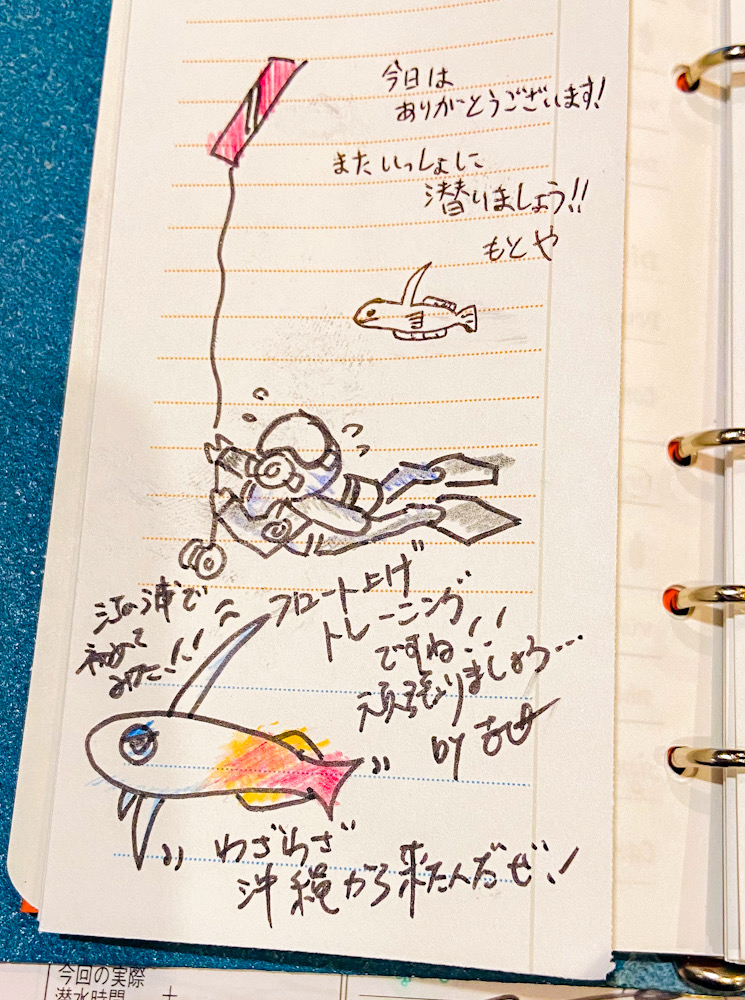 今日は
ありがとうございます!
またいっしょに
潜りましょう!!
もとや
江の浦で
初めて
みたこ!!
フロート上げ
トレーニング
ですね!!
頑張りましょう…
by
わざわざ
沖縄から来たんだぜ!
今回の実際
潜水時間